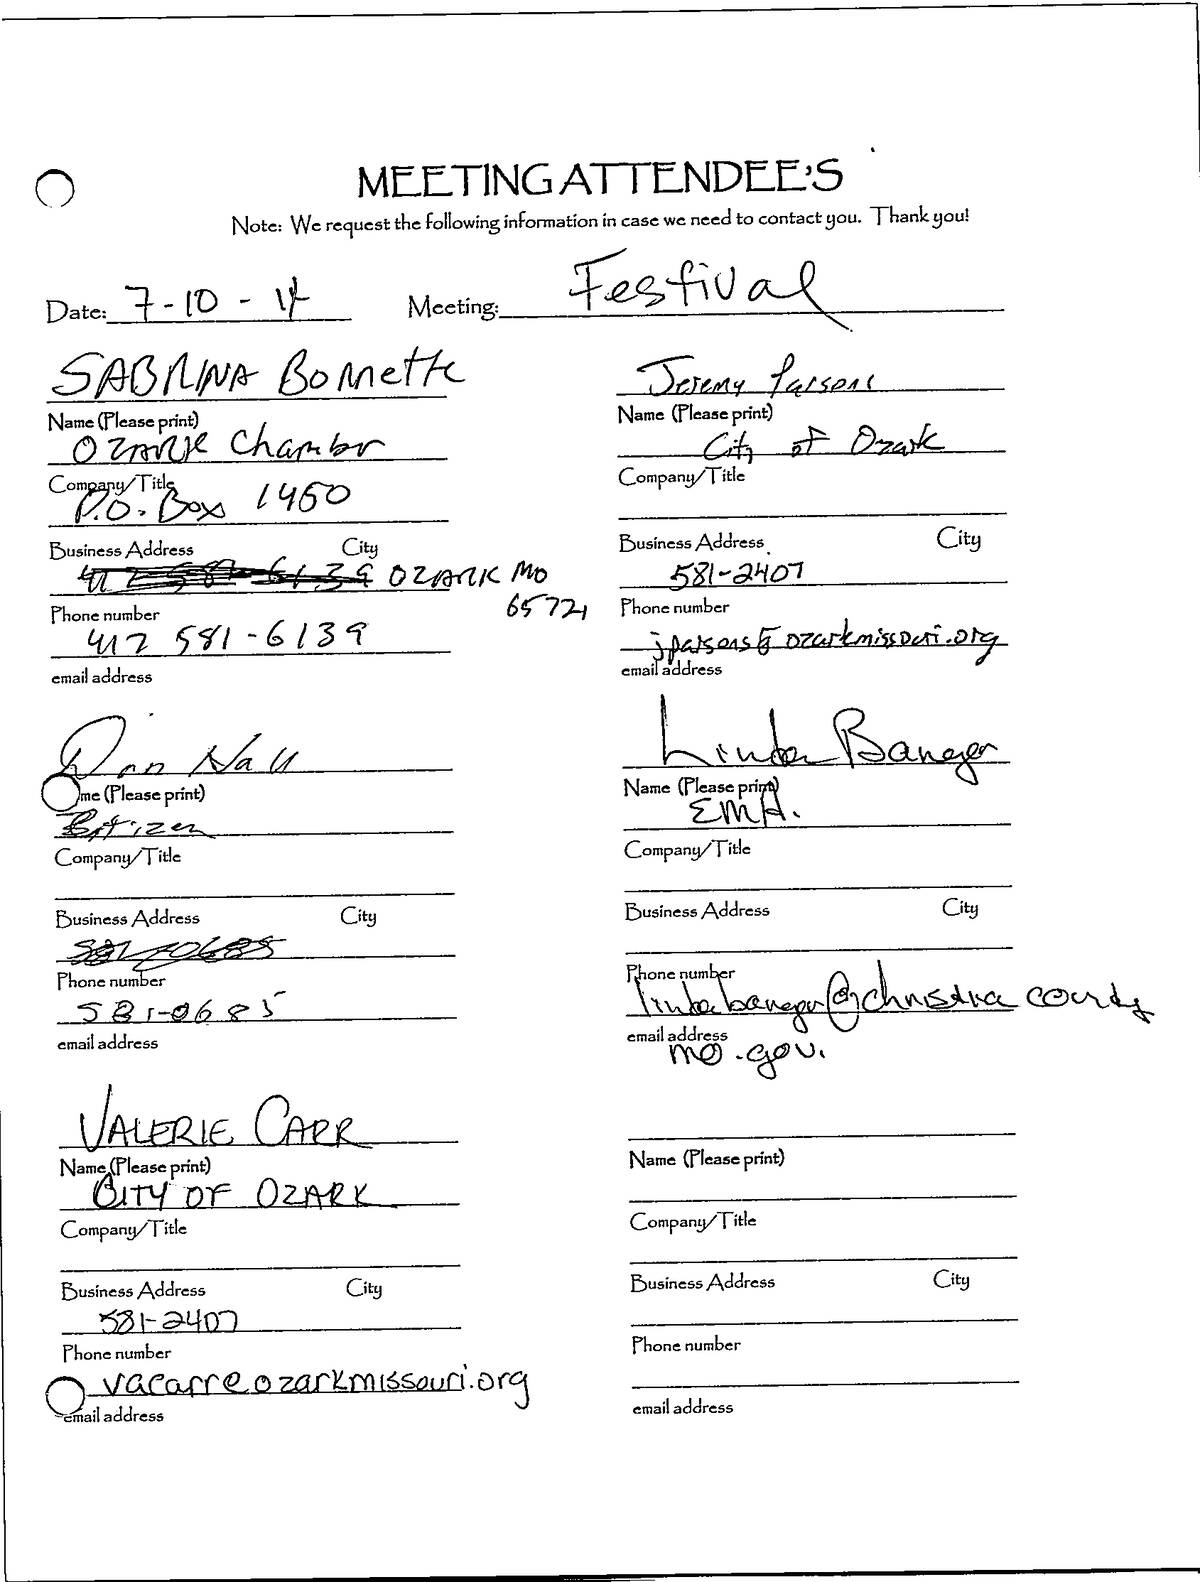 MEETING ATTENDEE'S
Note: We request the following information in case we need to contact you. Thank you!
Date: 7-10-14 Meeting: Festival
SABRINA Bonnette
Name (Please print)
OZARK Chamber
Company/Title
P.O. Box 1450
Business Address City
417 581-6139 OZARK MO
65721
Phone number
417 581-6139
email address
Jeremy Parsons
Name (Please print)
City of Ozark
Company/Title
Business Address City
581-2407
Phone number
jparsons@ozarkmissouri.org
email address
Don Hall
me (Please print)
Citizen
Company/Title
Business Address City
581-0685
Phone number
581-0685
email address
Linda Banger
Name (Please print)
EMA.
Company/Title
Business Address City
Phone number
lindabanger@christiancounty
email address
mo.gov.
VALERIE CARR
Name (Please print)
CITY OF OZARK
Company/Title
Business Address City
581-2407
Phone number
vacarr@ozarkmissouri.org
email address
Name (Please print)
Company/Title
Business Address City
Phone number
email address